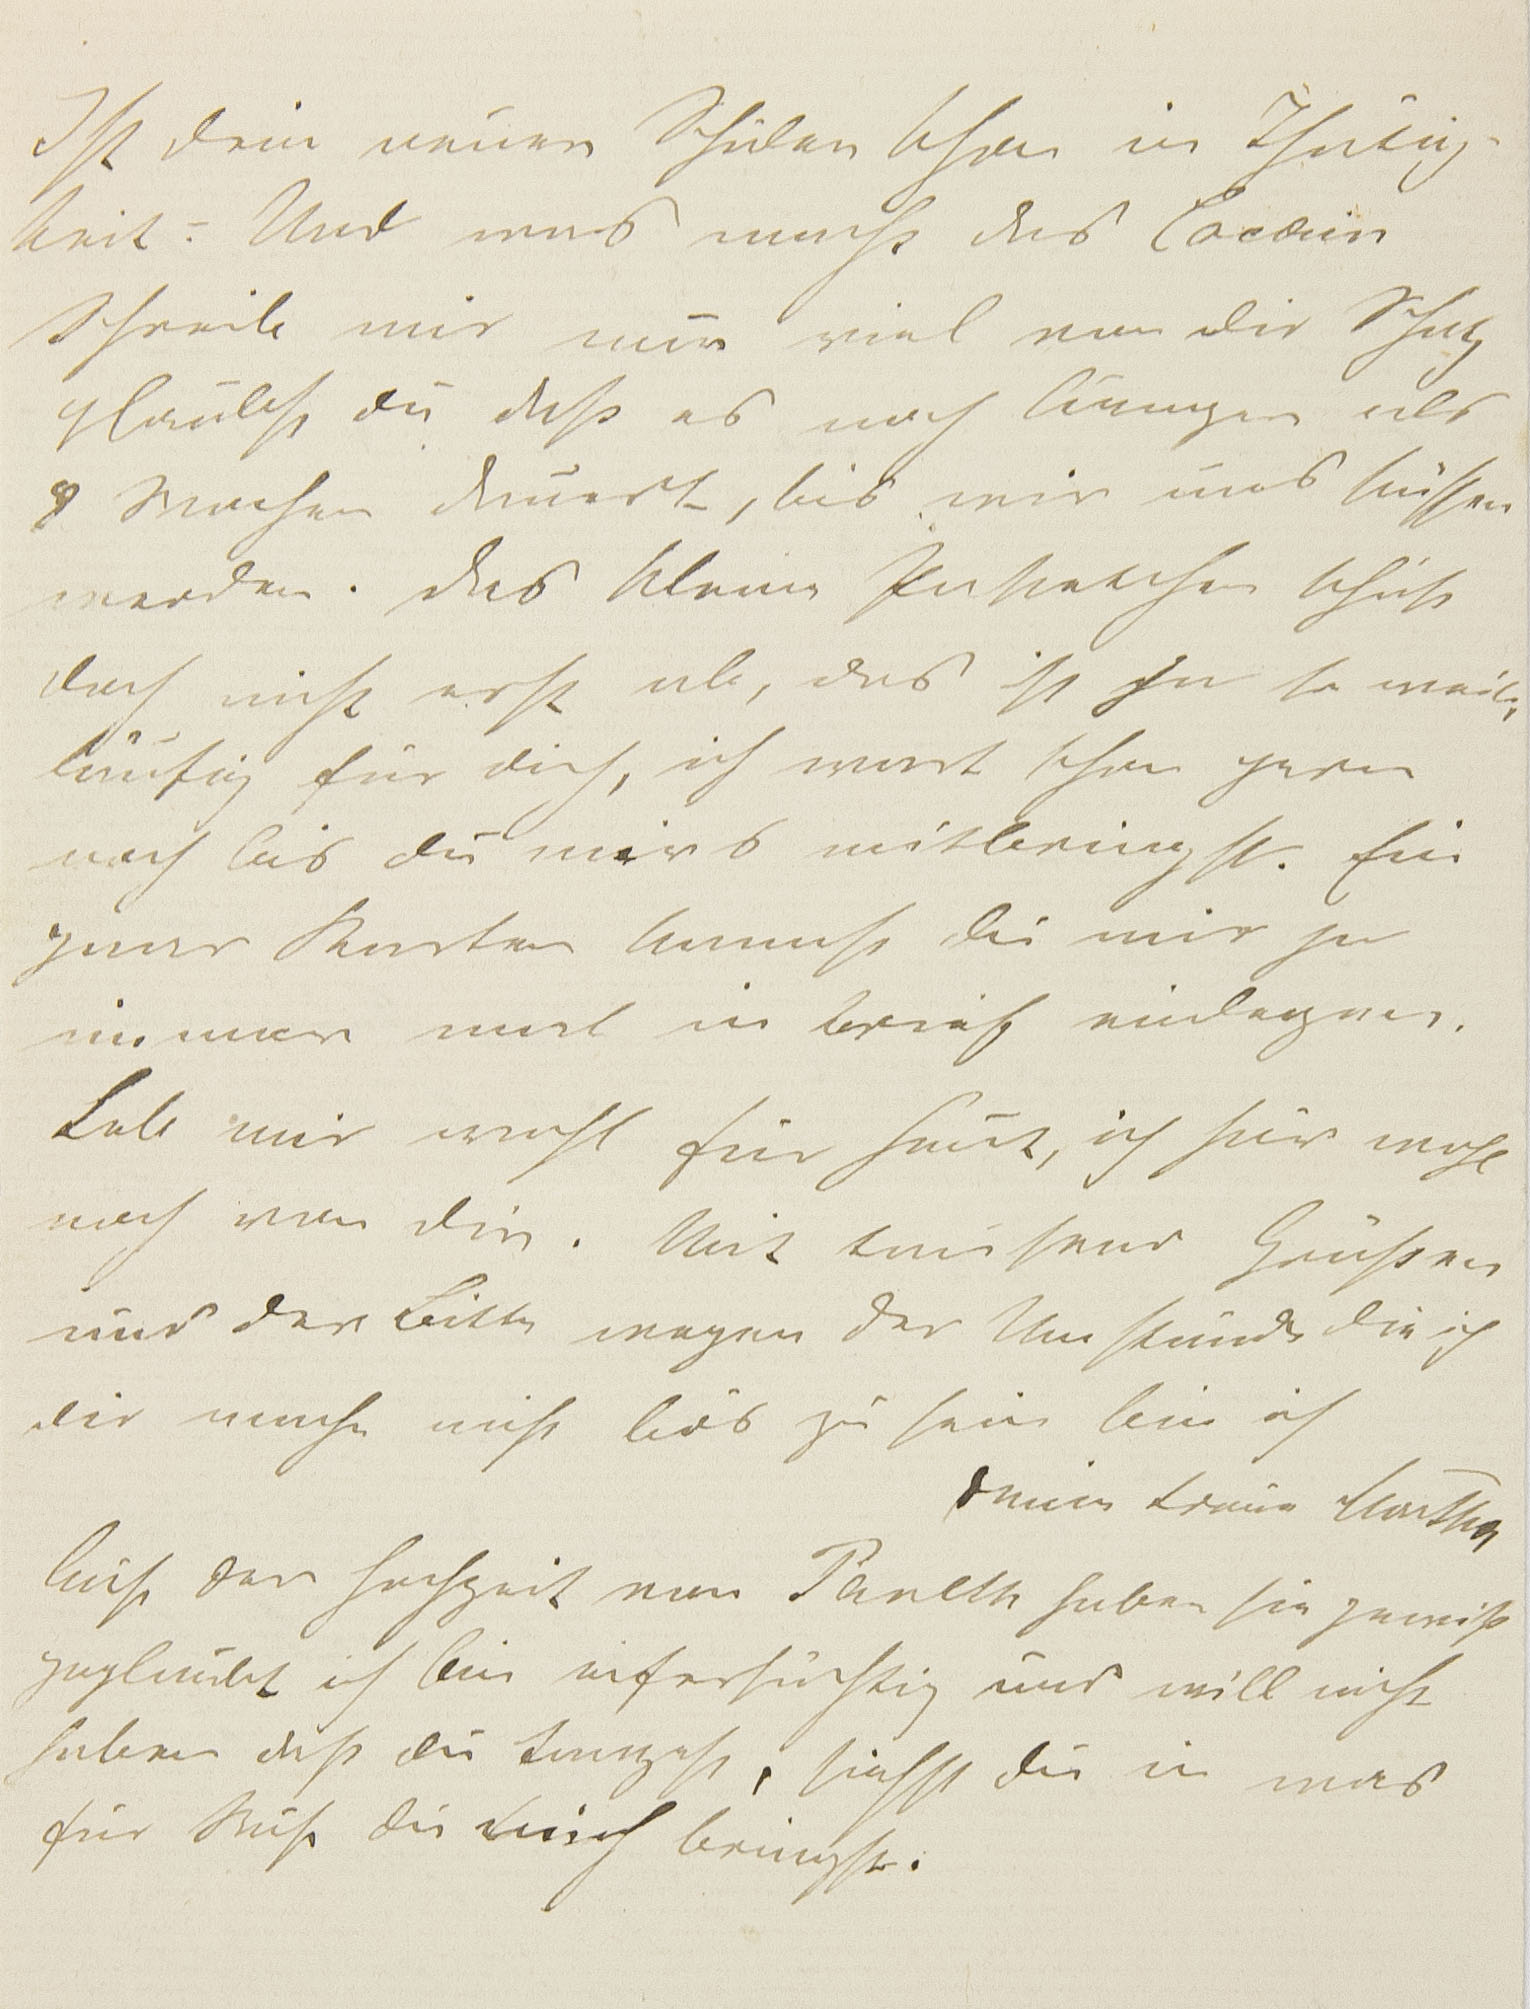 Ist dein neuer Schüler schon in Thätig-
keit? Und was macht das Cocain
Schreibe mir nur viel von dir Schatz
glaubst du daß es noch länger als
8 Wochen dauert, bis wir uns küssen
werden. Das kleine Packetchen schick
doch nicht erst ab, das ist ja so weit-
läufig für dich, ich wart schon gern
noch bis du mirs mitbringst. Ein
paar Karten kannst du mir ja
immer mal in brief einlegen.
Leb mir wohl für heut, ich hör wohl
noch von dir. Mit tausend Grüßen
und der Bitte wegen der Umstände die ich
dir mache nicht bös zu sein bin ich
deine treue Martha
bei der Hochzeit von Paneth haben sie gewiß
geglaubt ich bin eifersüchtig und will nicht
haben daß du tanzest, siehst du in was
für Ruf du mich bringst.